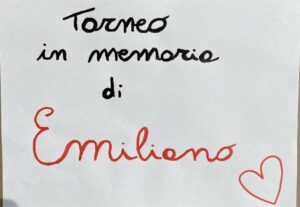 Torneo
in memoria
di
Emiliano